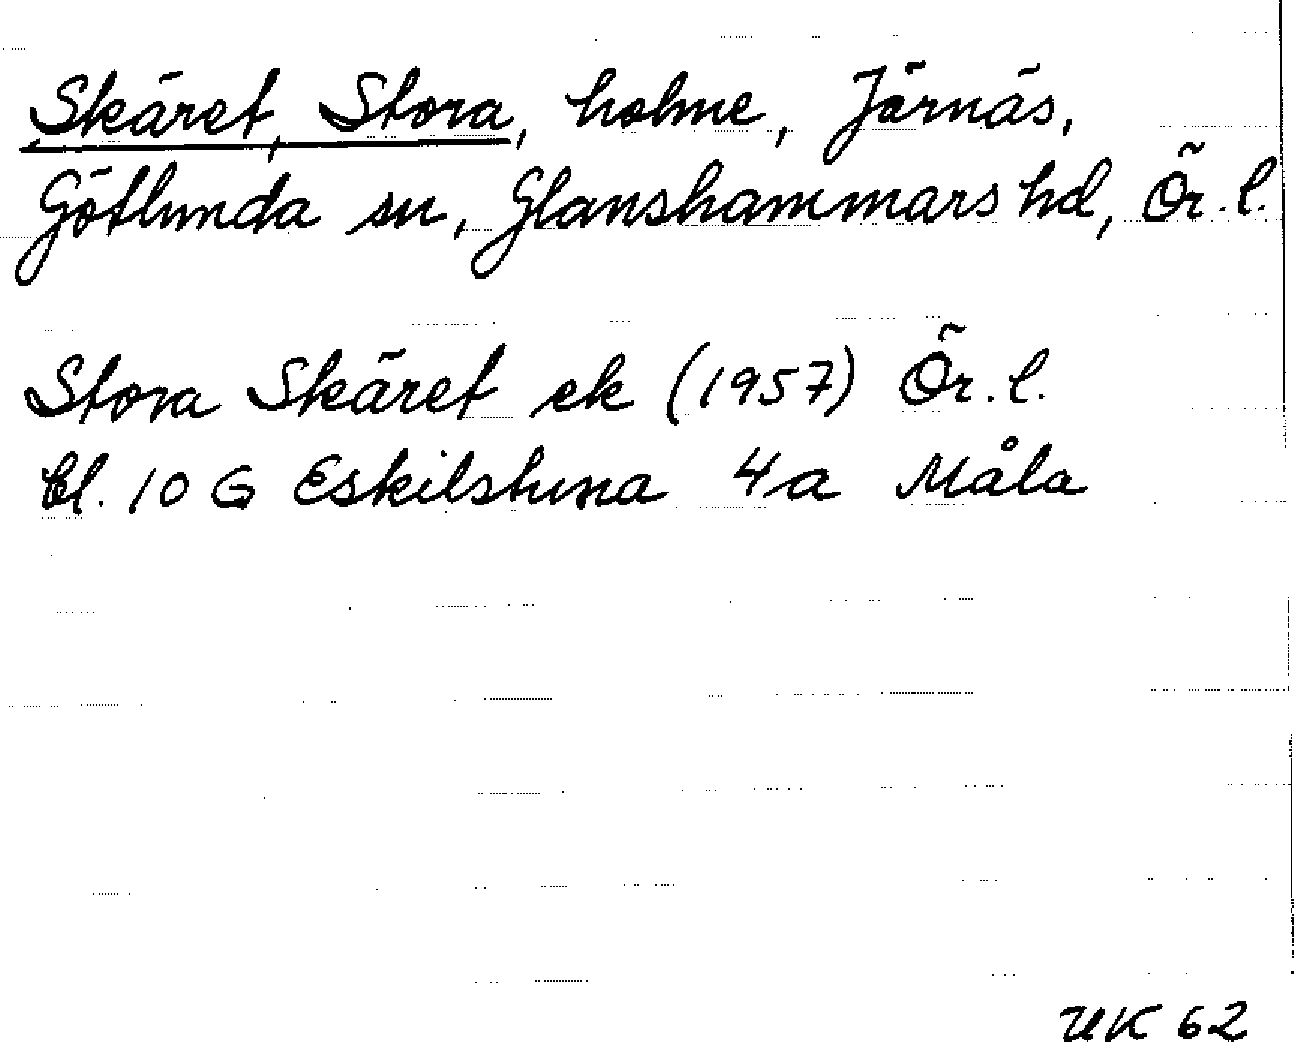 Skäret, Stora, holme, Järnäs,
Götlunda sn, Glanshammars hd, Ör. l.
Stora Skäret ek (1957) Ör. l.
bl. 10 G Eskilstuna 4a Måla
UK 62